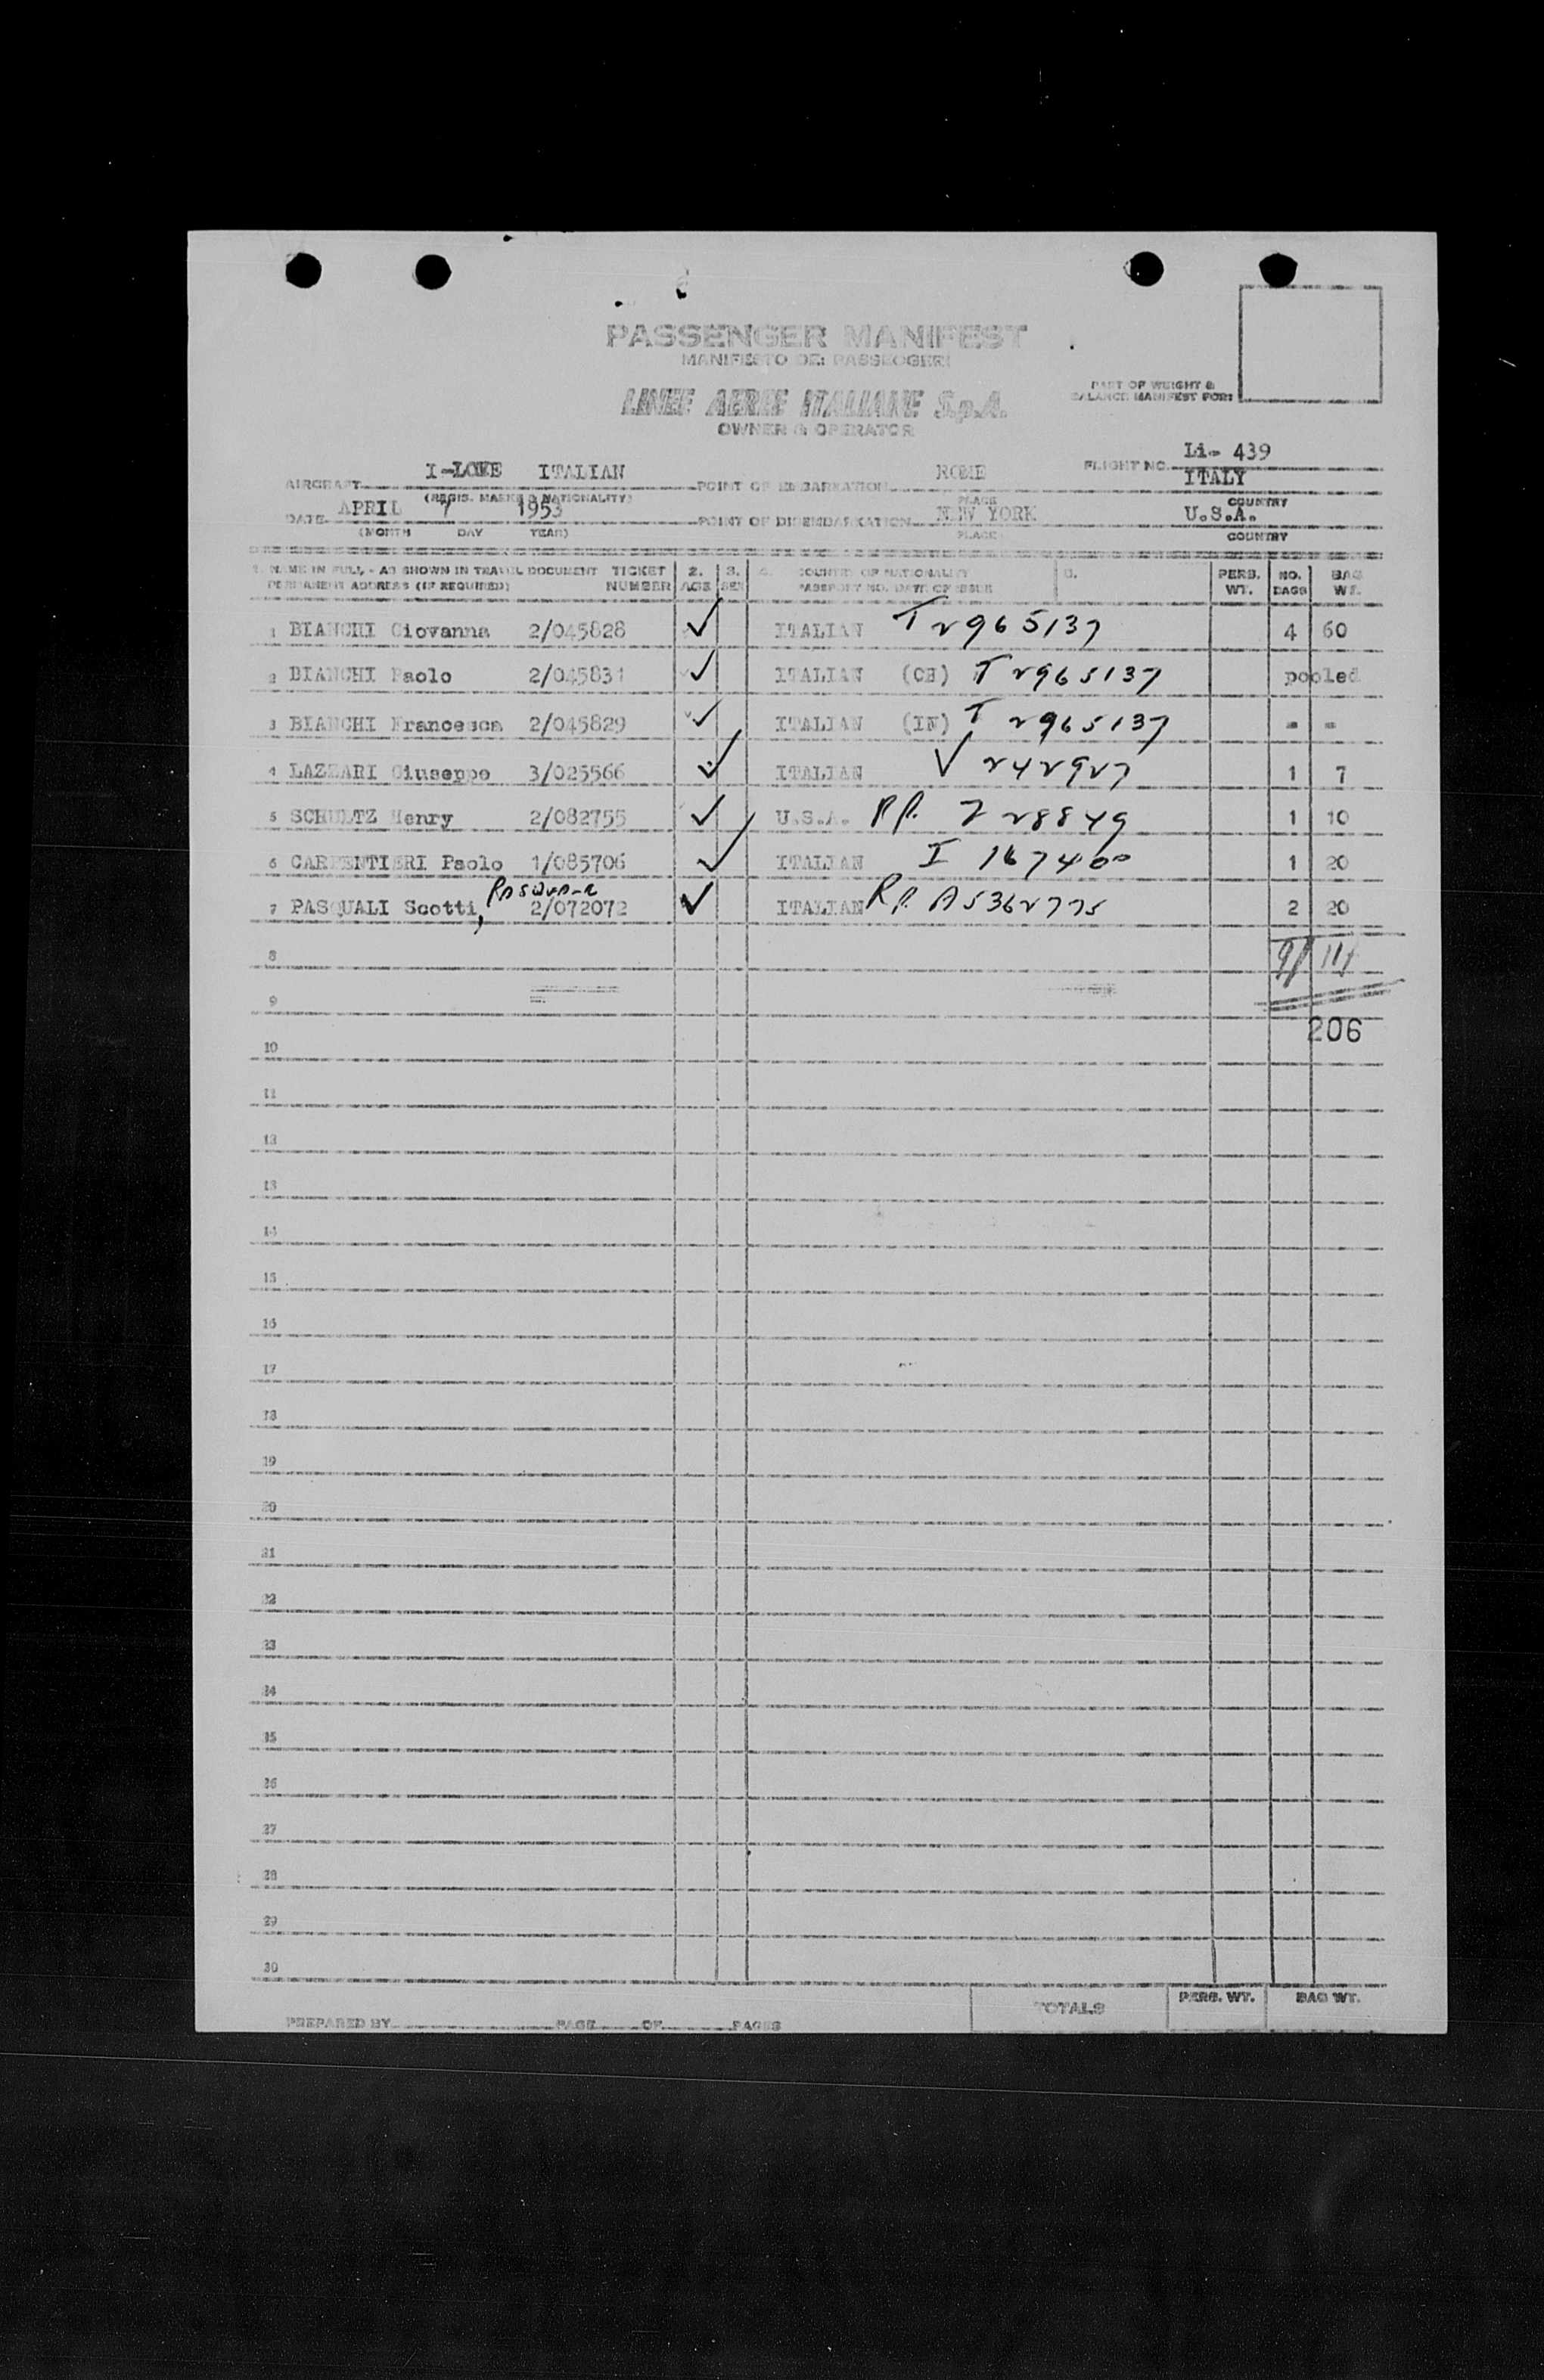 PASSENGER MANIFEST
MANIFESTO DEI PASSEGGERI
PART OF WEIGHT &
BALANCE MANIFEST FOR:
LINEE AEREE ITALIANE S.p.A.
OWNER & OPERATOR
AIRCRAFT I-LOVE ITALIAN POINT OF EMBARKATION ROME FLIGHT NO. Li- 439
ITALY
(REGIS. MARKS & NATIONALITY) PLACE COUNTRY
DATE APRIL 7 1953 POINT OF DISEMBARKATION NEW YORK U.S.A.
(MONTH DAY YEAR) PLACE COUNTRY
1. NAME IN FULL - AS SHOWN IN TRAVEL DOCUMENT TICKET 2. 3. 4. COUNTRY OF NATIONALITY 5. PERS. NO. BAG
PERMANENT ADDRESS (IF REQUIRED) NUMBER AGE SEX PASSPORT NO. DATE OF ISSUE WT. BAGS WT.
1 BIANCHI Giovanna 2/045828 ✓ ITALIAN T 2965137 4 60
2 BIANCHI Paolo 2/045831 ✓ ITALIAN (CH) T 2965137 pooled
3 BIANCHI Francesca 2/045829 ✓ ITALIAN (IN) T 2965137 - -
4 LAZZARI Giuseppe 3/025566 ✓ ITALIAN V 242927 1 7
5 SCHULTZ Henry 2/082755 ✓ U.S.A. P.P. 228849 1 10
6 CARPENTIERI Paolo 1/085706 ✓ ITALIAN I 167400 1 20
7 PASQUALI Scotti, 2/072072 ✓ ITALIAN P.P. A5362775 2 20
8 9/ 117
9
206
10
11
12
13
14
15
16
17
18
19
20
21
22
23
24
25
26
27
28
29
30
TOTALS PERS. WT. BAG WT.
PREPARED BY PAGE OF PAGES